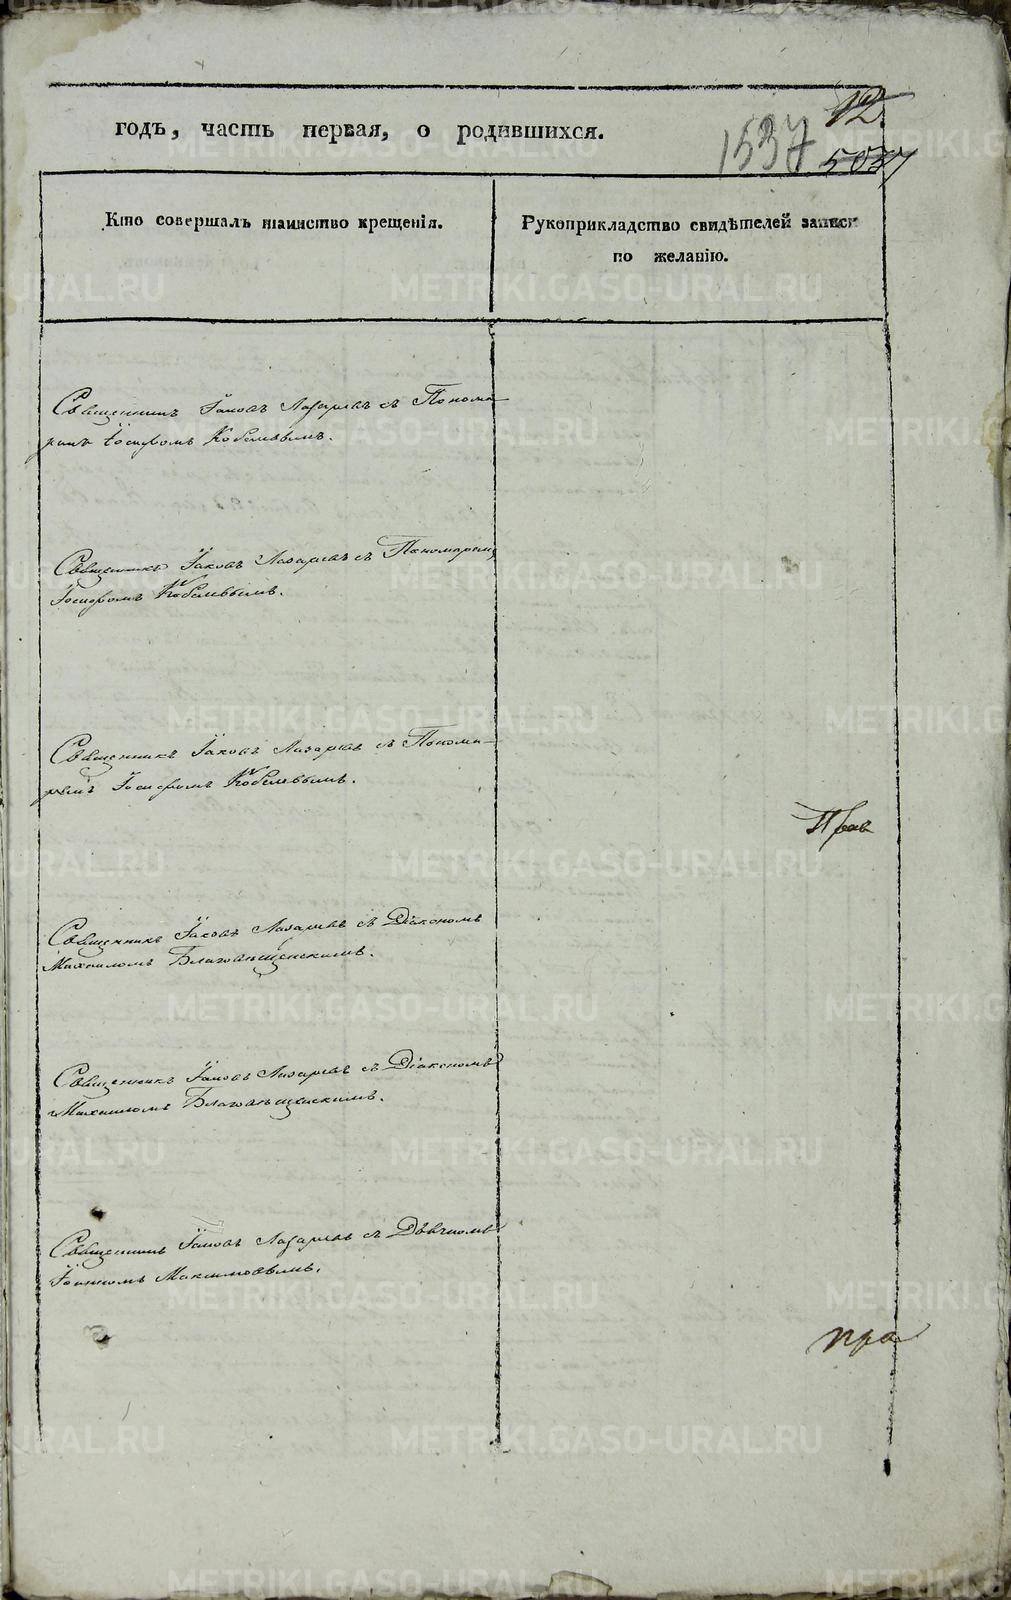 годъ, часть первая, о родившихся.
12
1537
5037
Кто совершалъ таинство крещенія.
Рукоприкладство свидѣтелей записи
по желанію.
Священникъ Іаковъ Лазаревъ съ Понома-
ремъ Іосифомъ Кобелевымъ.
Священникъ Іаковъ Лазаревъ съ Пономаремъ
Іосифомъ Кобелевымъ.
Священникъ Іаковъ Лазаревъ съ Понома-
ремъ Іосифомъ Кобелевымъ.
Прав
Священникъ Іаковъ Лазаревъ съ Діакономъ
Михаиломъ Благовѣщенскимъ.
Священникъ Іаковъ Лазаревъ съ Діакономъ
Михаиломъ Благовѣщенскимъ.
Священникъ Іаковъ Лазаревъ съ Дьячкомъ
Іоанномъ Максимовымъ.
пра
METRIKI.GASO-URAL.RU